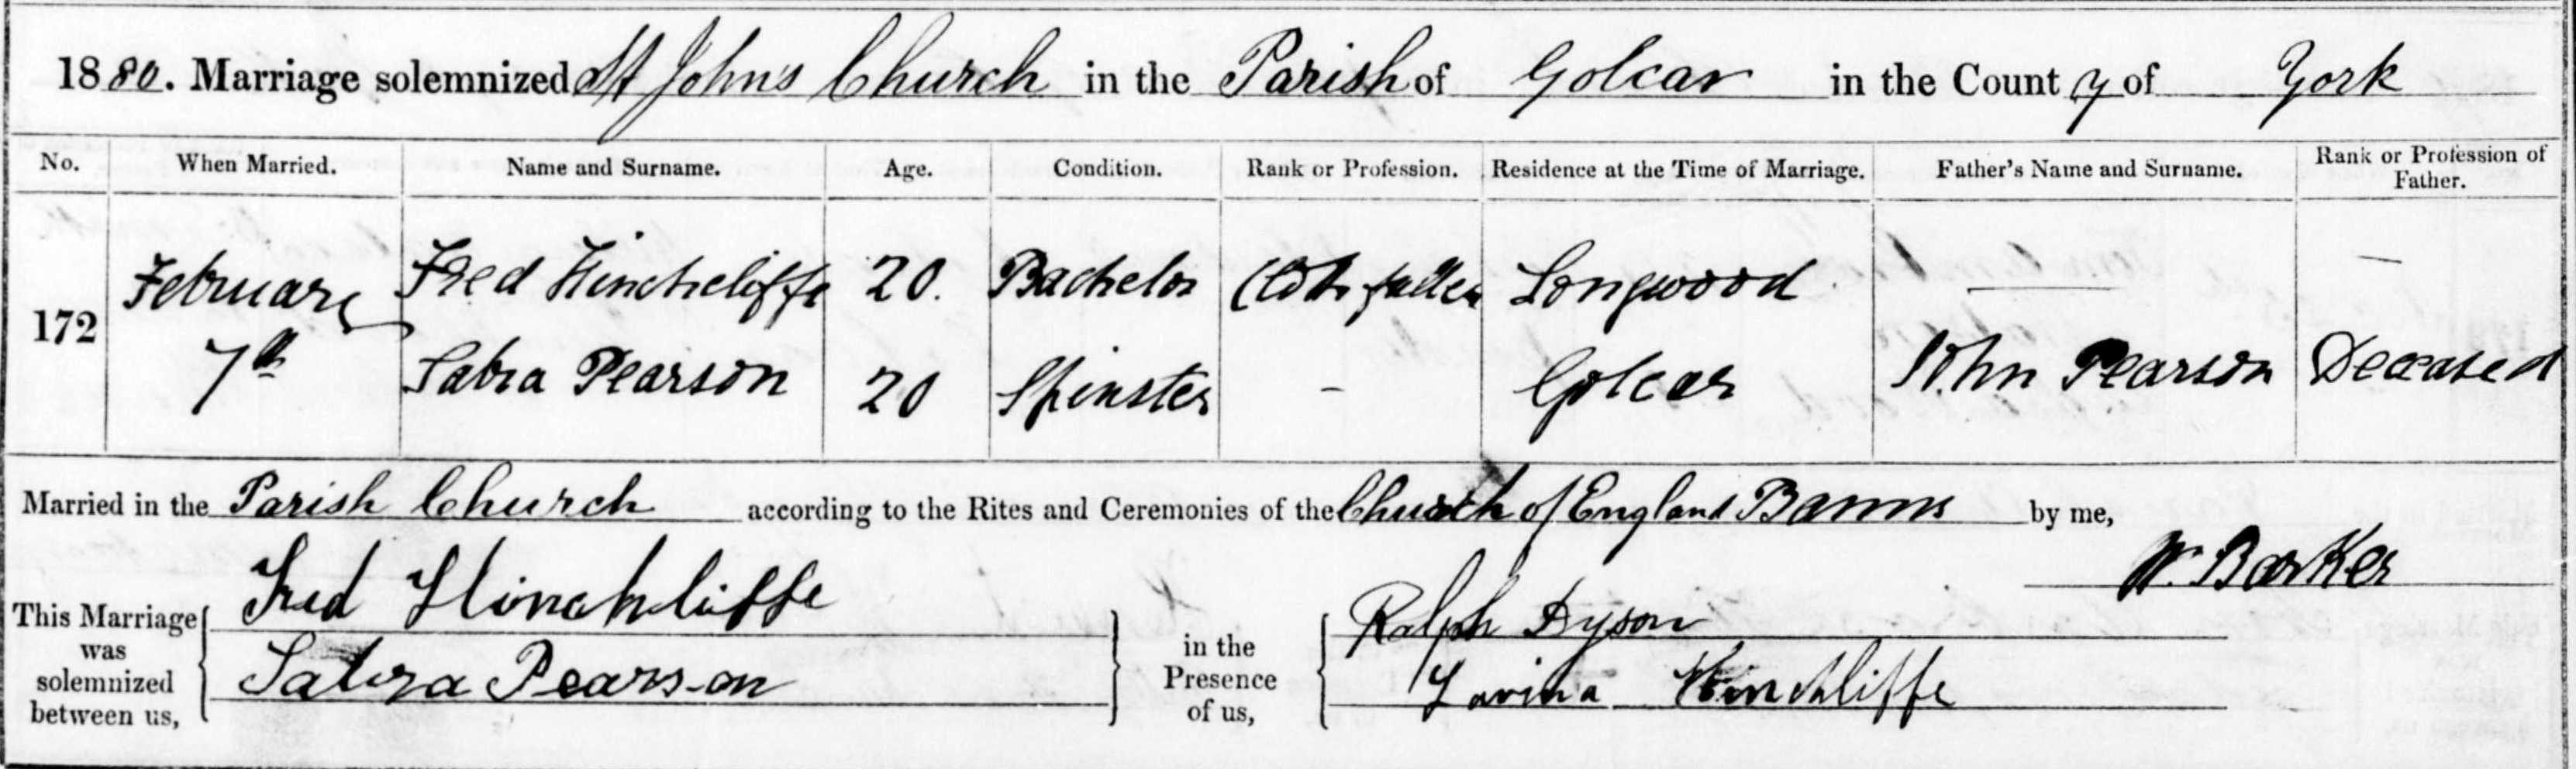 1880. Marriage solemnized St John's Church in the Parish of Golcar in the County of York
No. When Married. Name and Surname. Age. Condition. Rank or Profession. Residence at the Time of Marriage. Father's Name and Surname. Rank or Profession of Father.
172 February 7th Fred Hinchcliffe 20. Bachelor Cloth fuller Longwood — —
Sabra Pearson 20 Spinster - Golcar John Pearson Deceased
Married in the Parish Church according to the Rites and Ceremonies of the Church of England Banns by me,
W. Barker
This Marriage was solemnized between us, Fred Hinchliffe Sabra Pearson in the Presence of us, Ralph Dyson Lavina Hinchliffe